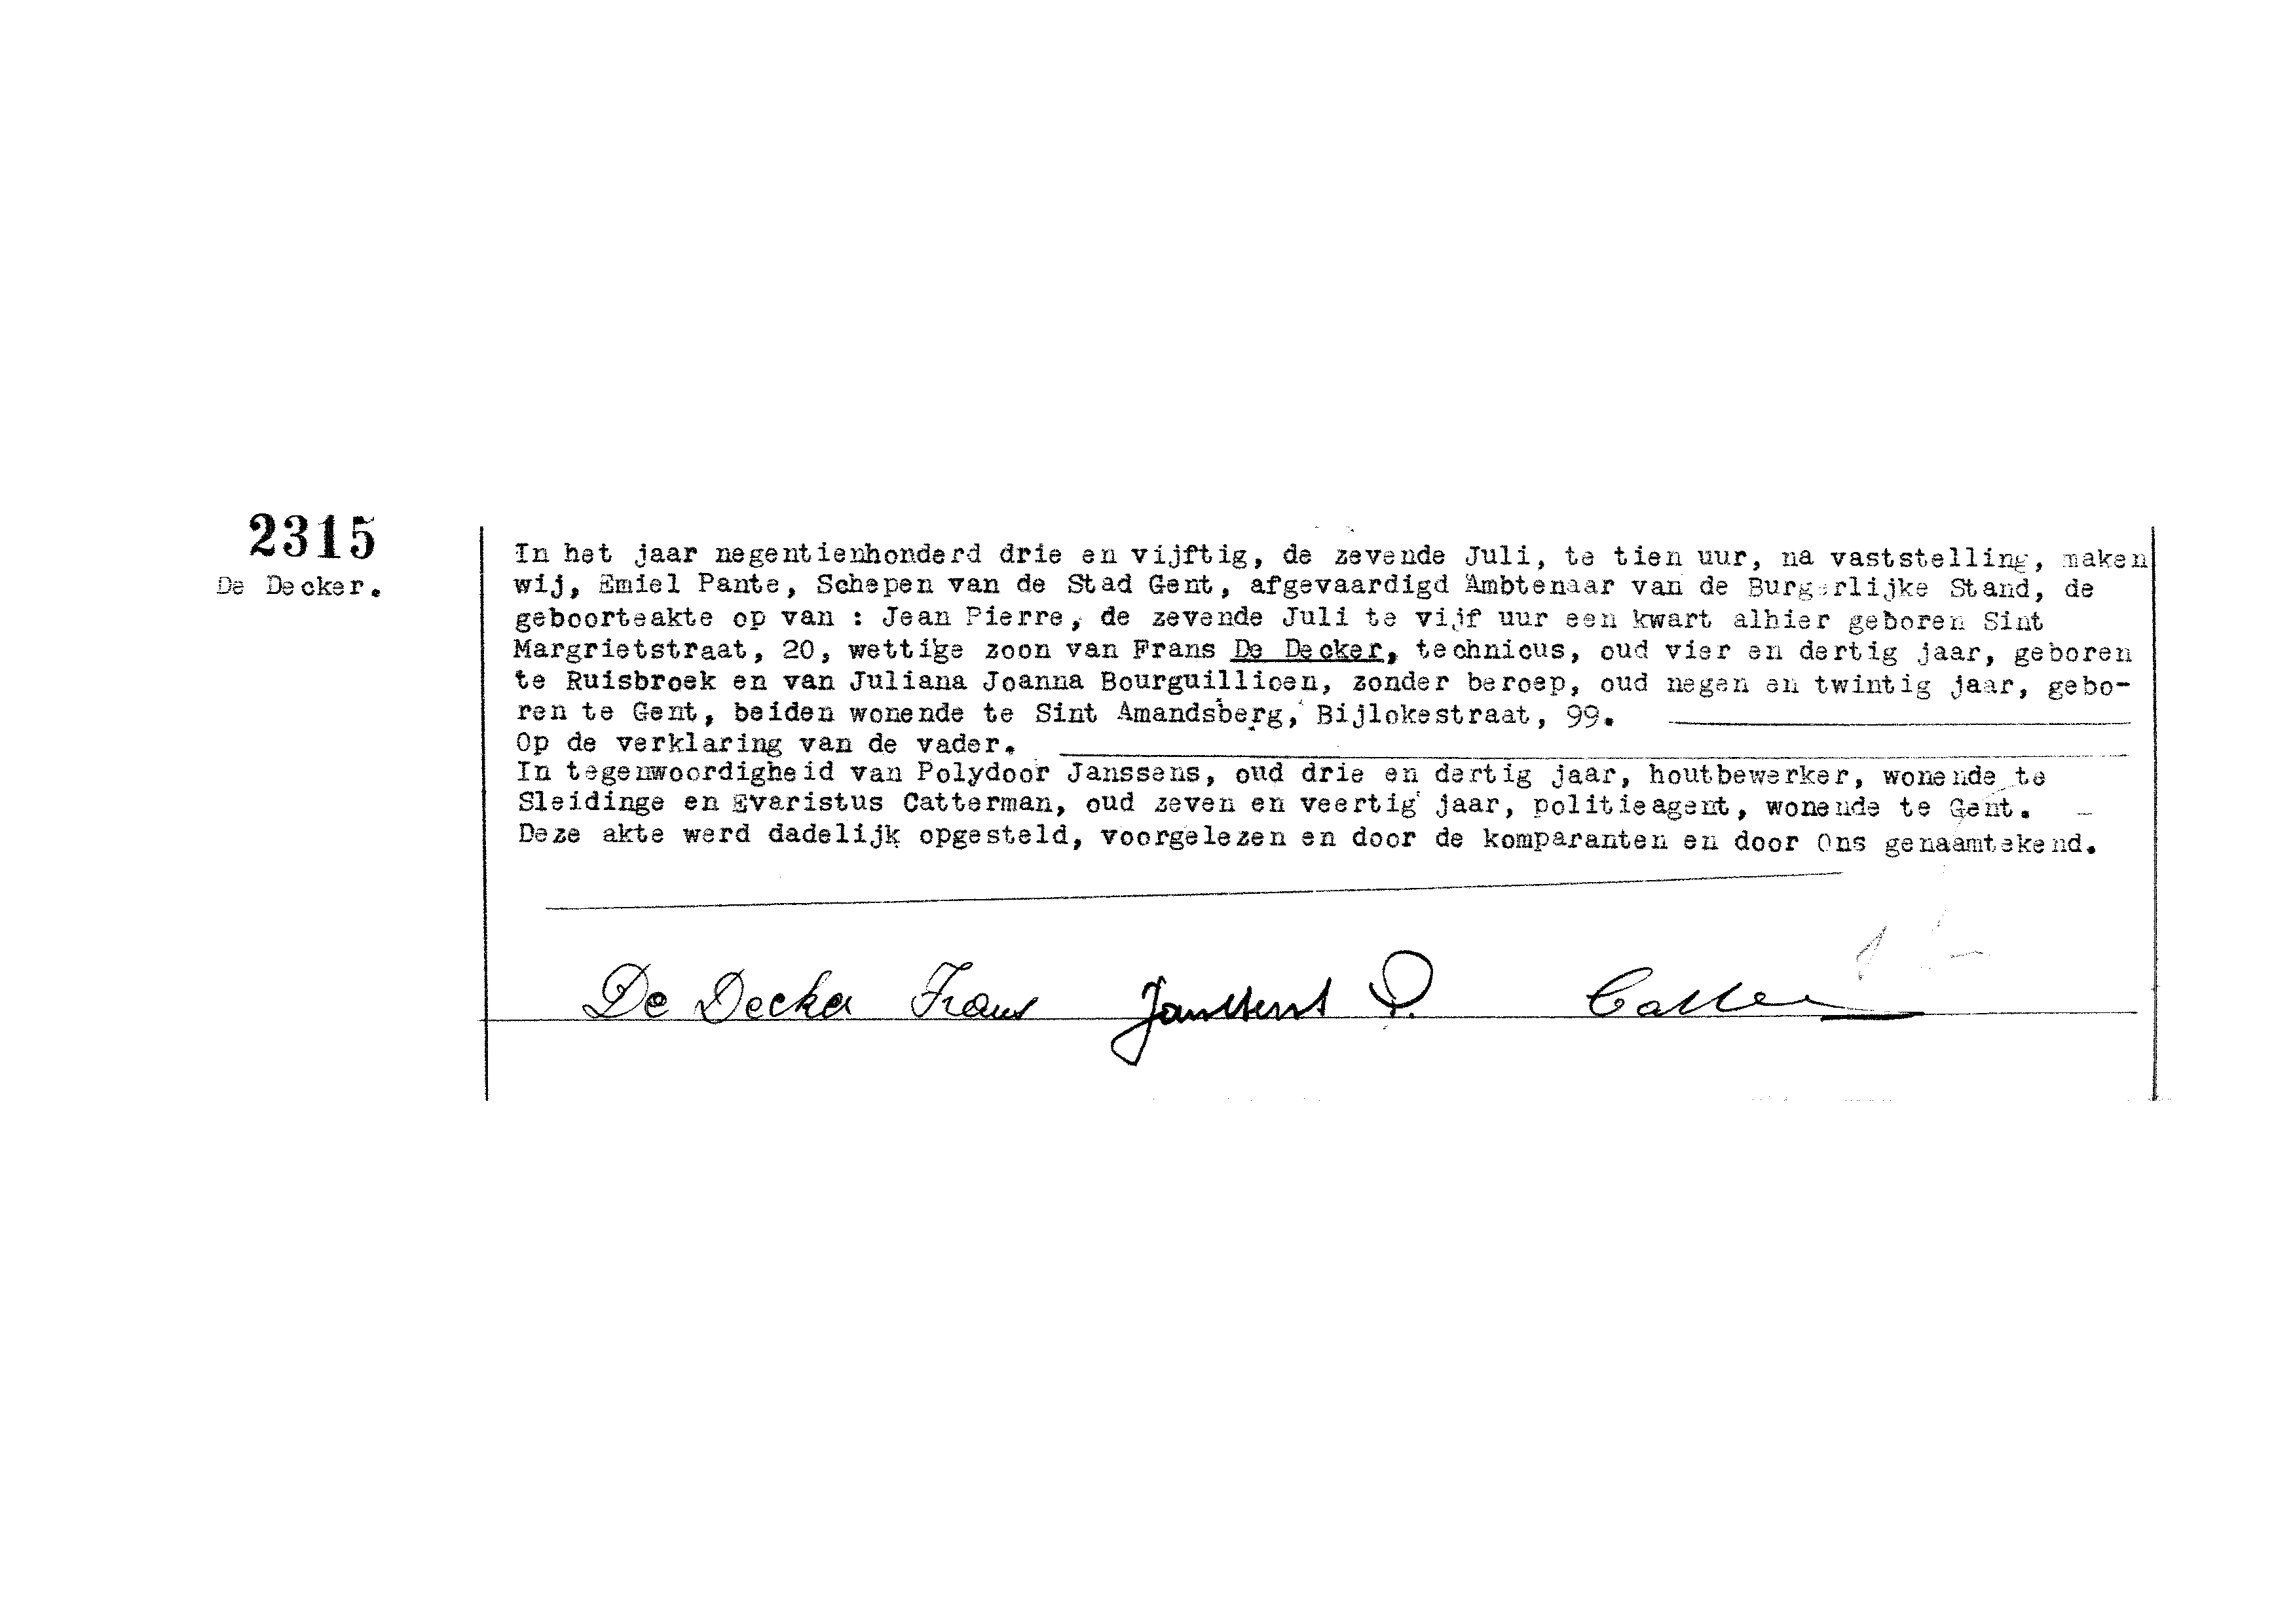 2315
De Decker.
In het jaar negentienhonderd drie en vijftig, de zevende Juli, te tien uur, na vaststelling, maken
wij, Emiel Pante, Schepen van de Stad Gent, afgevaardigd Ambtenaar van de Burgerlijke Stand, de
geboorteakte op van : Jean Pierre, de zevende Juli te vijf uur een kwart alhier geboren Sint
Margrietstraat, 20, wettige zoon van Frans De Decker, technicus, oud vier en dertig jaar, geboren
te Ruisbroek en van Juliana Joanna Bourguillioen, zonder beroep, oud negen en twintig jaar, gebo-
ren te Gent, beiden wonende te Sint Amandsberg, Bijlokestraat, 99.
Op de verklaring van de vader.
In tegenwoordigheid van Polydoor Janssens, oud drie en dertig jaar, houtbewerker, wonende te
Sleidinge en Evaristus Catterman, oud zeven en veertig jaar, politieagent, wonende te Gent.
Deze akte werd dadelijk opgesteld, voorgelezen en door de komparanten en door Ons genaamtekend.
De Decker Frans Janssens P.